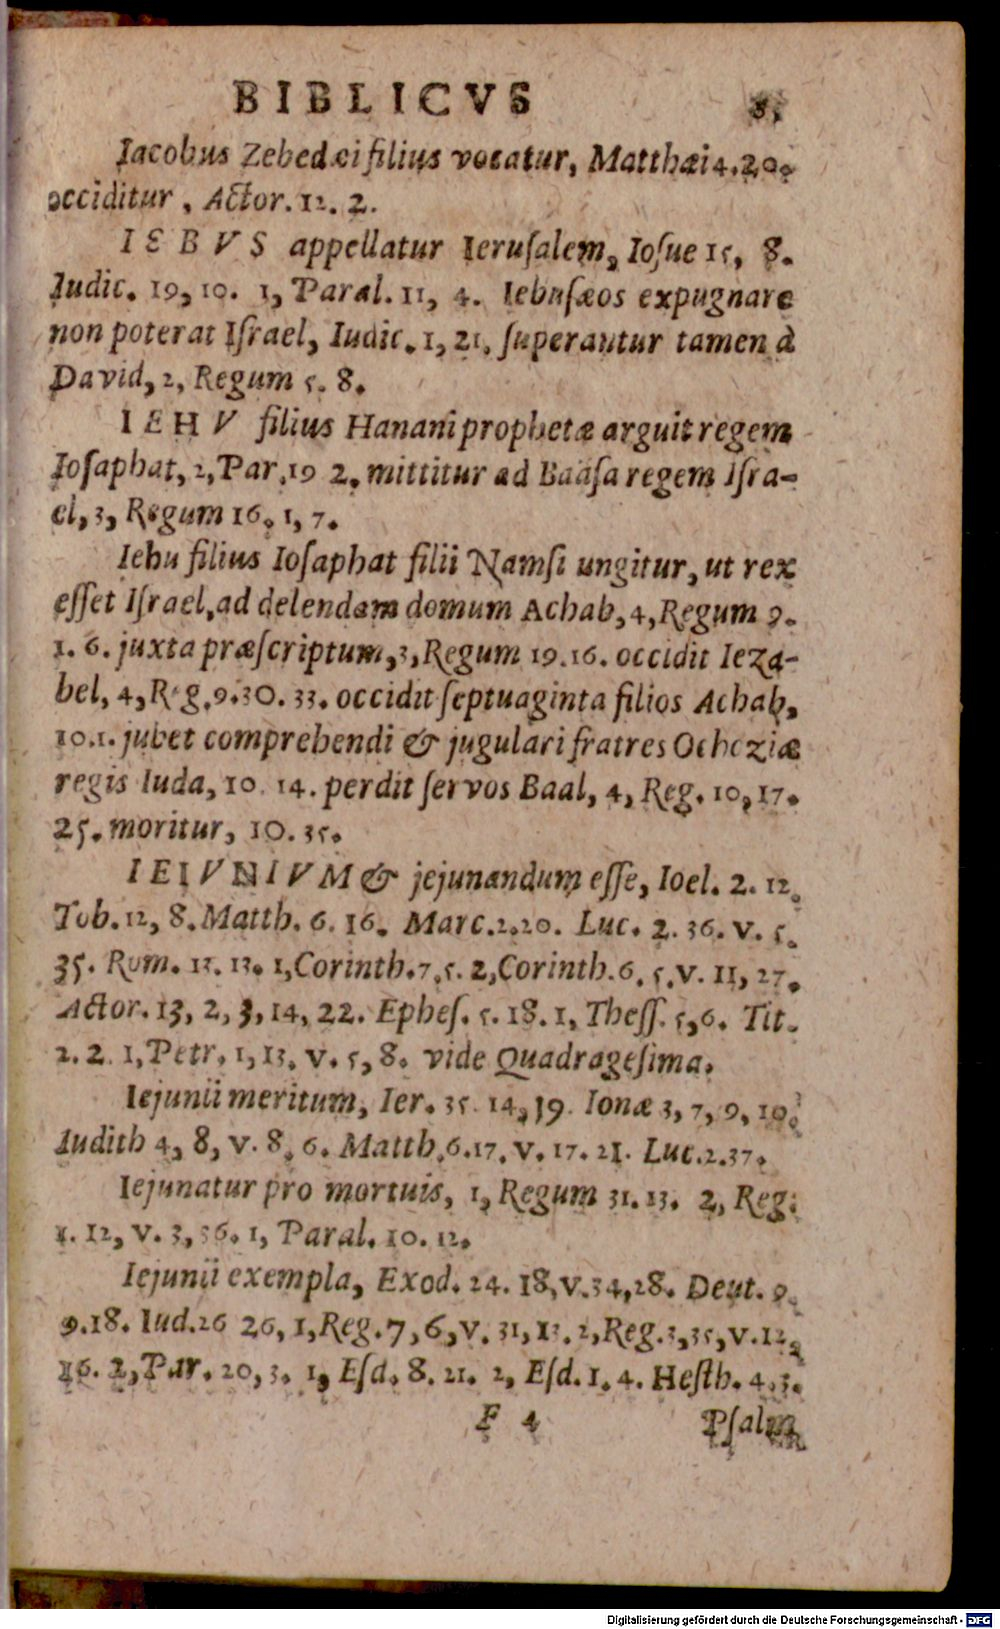 BIBLICVS
Iacobus Zebedæi filius vocatur, Matthæi 4.20.
occiditur, Actor. 12. 2.
IEBVS appellatur Ierusalem, Iosue 15, 8.
Iudic. 19, 10. 1, Paral. 11, 4. Iebusæos expugnare
non poterat Israel, Iudic. 1, 21. superantur tamen à
David, 2, Regum 5. 8.
IEHV filius Hanani prophetæ arguit regem
Iosaphat, 2, Par. 19 2. mittitur ad Baasa regem Isra-
el, 3, Regum 16. 1, 7.
Iehu filius Iosaphat filii Namsi ungitur, ut rex
esset Israel, ad delendam domum Achab, 4, Regum 9.
1. 6. juxta præscriptum, 3, Regum 19. 16. occidit Ieza-
bel, 4, Reg. 9. 30. 33. occidit septuaginta filios Achab,
10. 1. jubet comprehendi & jugulari fratres Ocheziæ
regis Iuda, 10. 14. perdit servos Baal, 4, Reg. 10, 17.
25. moritur, 10. 35.
IEIVNIVM & jejunandum esse, Ioel. 2. 12.
Tob. 12, 8. Matth. 6. 16. Marc. 2. 20. Luc. 2. 36. v. 5.
35. Rom. 13. 13. 1, Corinth. 7. 5. 2, Corinth. 6. 5. v. 11, 27.
Actor. 13, 2, 3, 14, 22. Ephes. 5. 18. 1, Thess. 5, 6. Tit.
2. 2. 1, Petr. 1, 13. v. 5, 8. vide Quadragesima.
Iejunii meritum, Ier. 35. 14, 19. Ionæ 3, 7, 9, 10.
Iudith 4, 8, v. 8. 6. Matth. 6. 17. v. 17. 21. Luc. 2. 37.
Iejunatur pro mortuis, 1, Regum 31. 13. 2, Reg.
1. 12, v. 3, 36. 1, Paral. 10. 12.
Iejunii exempla, Exod. 24. 18, v. 34, 28. Deut. 9.
9. 18. Iud. 26 26, 1, Reg. 7, 6, v. 31, 13. 2, Reg. 3, 35, v. 12,
16. 2, Par. 20, 3. 1, Esd. 8. 21. 2, Esd. 1. 4. Hesth. 4. 3.
F 4 Psalm
Digitalisierung gefördert durch die Deutsche Forschungsgemeinschaft - DFG